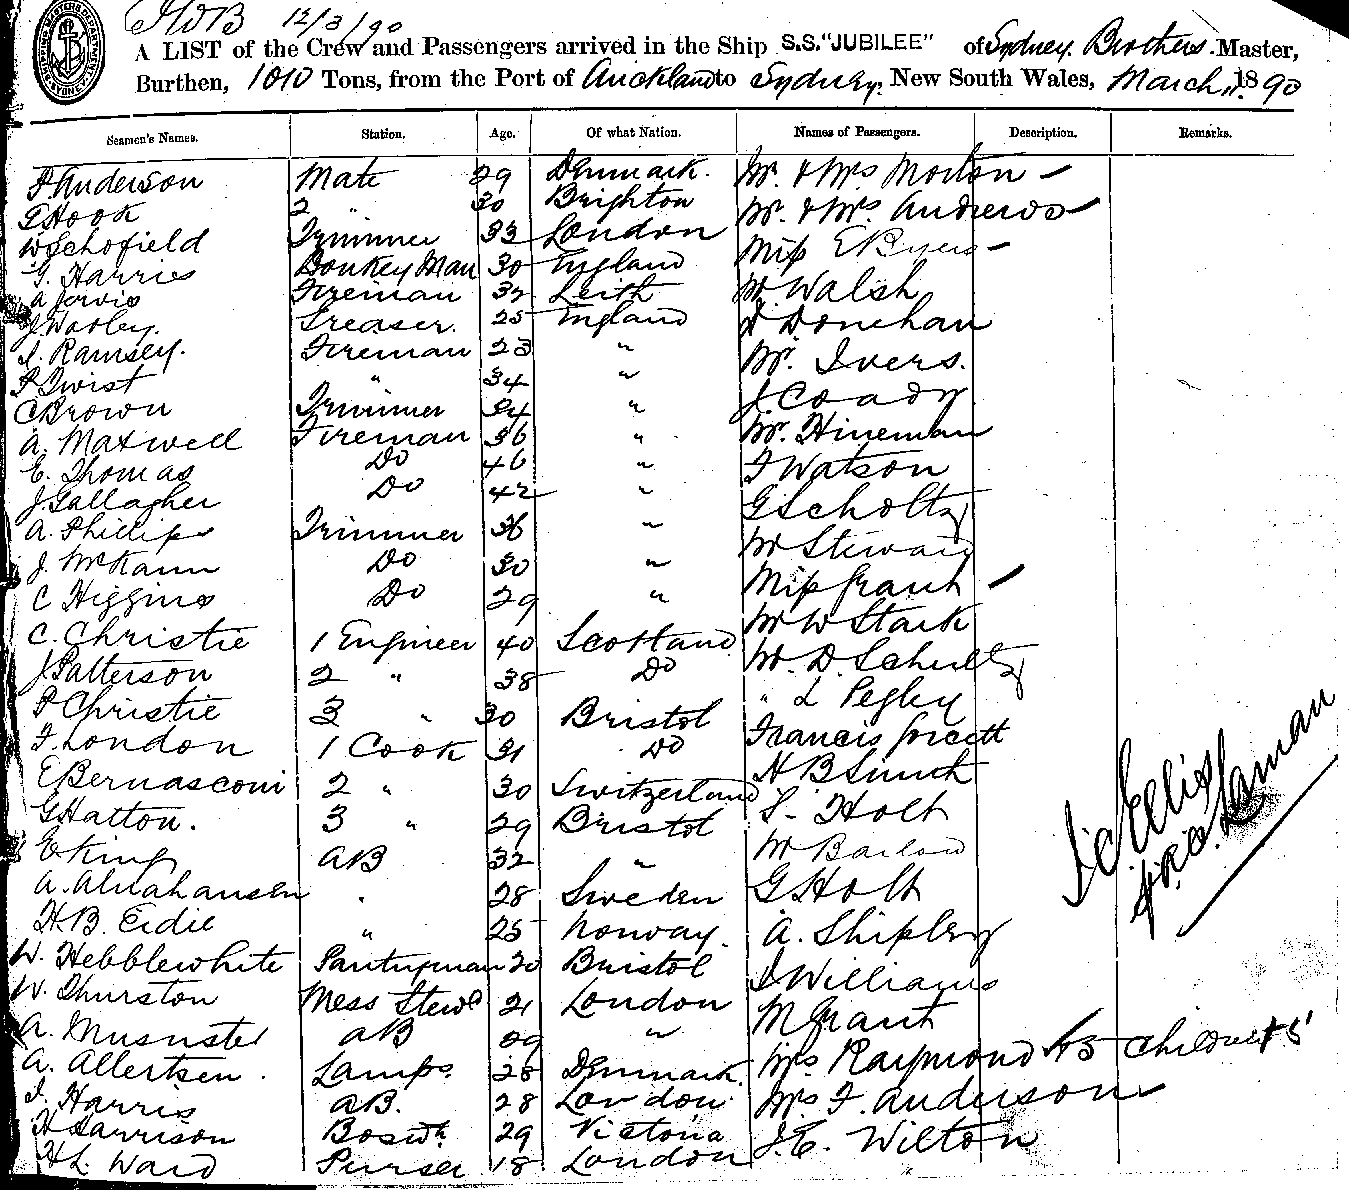 HWB 12/3/90
A LIST of the Crew and Passengers arrived in the Ship S.S. "JUBILEE" of Sydney. Brothers. Master,
Burthen, 1010 Tons, from the Port of Auckland to Sydney, New South Wales, March 11. 1890
Seamen's Names. Station. Age. Of what Nation. Names of Passengers. Description. Remarks.
P Anderson Mate 29 Denmark. Mr. & Mrs Morton -
G Hook 2 " 30 Brighton Mr. & Mrs. Andrews -
W Schofield Trimmer 33 London Miss E Byers -
G. Harris Donkey Man 30 England Mr Walsh
A Jarvis Fireman 32 Leith D Donehan
J Worley. Greaser. 25 England Mr. Ivers.
J. Ramsey. Fireman 23 " J. Coady
P Twist " 34 " Mr. Hineman
C Brown Trimmer 24 " F Watson
A. Maxwell Fireman 36 " G Scholtz
E. Thomas Do 46 " Mr Steward
J. Gallagher Do 42 " Miss Grant -
A. Phillips Trimmer 36 " Mr W Stark
J. McKann Do 30 " Mr. D. Schultz
C Higgins Do 29 " " L Pegley
C. Christie 1 Engineer 40 Scotland Francis
J Patterson 2 " 38 Do H B
P Christie 3 " 30 Bristol S. Holt
F. London 1 Cook 31 Do Mr Barlow
E Bernasconi 2 " 30 Switzerland G Holt
G Hatton. 3 " 29 Bristol A. Shipley
E King AB 32 " J Williams
A. Abrahansen " 28 Sweden M Grant
H.B. Eidie " 25 Norway. Mrs Raymond & 5 children & 5
W. Hebblewhite Pantryman 20 Bristol Mrs F. Anderson -
W. Thurston Mess Stewd 21 London J.E. Wilton
A. AB 29 "
A. Allertsen. Lamps. 28 Denmark.
J. Harris AB. 28 London
H Harrison Boswn 29 Victoria
H L. Ward Purser 18 London
Ellis